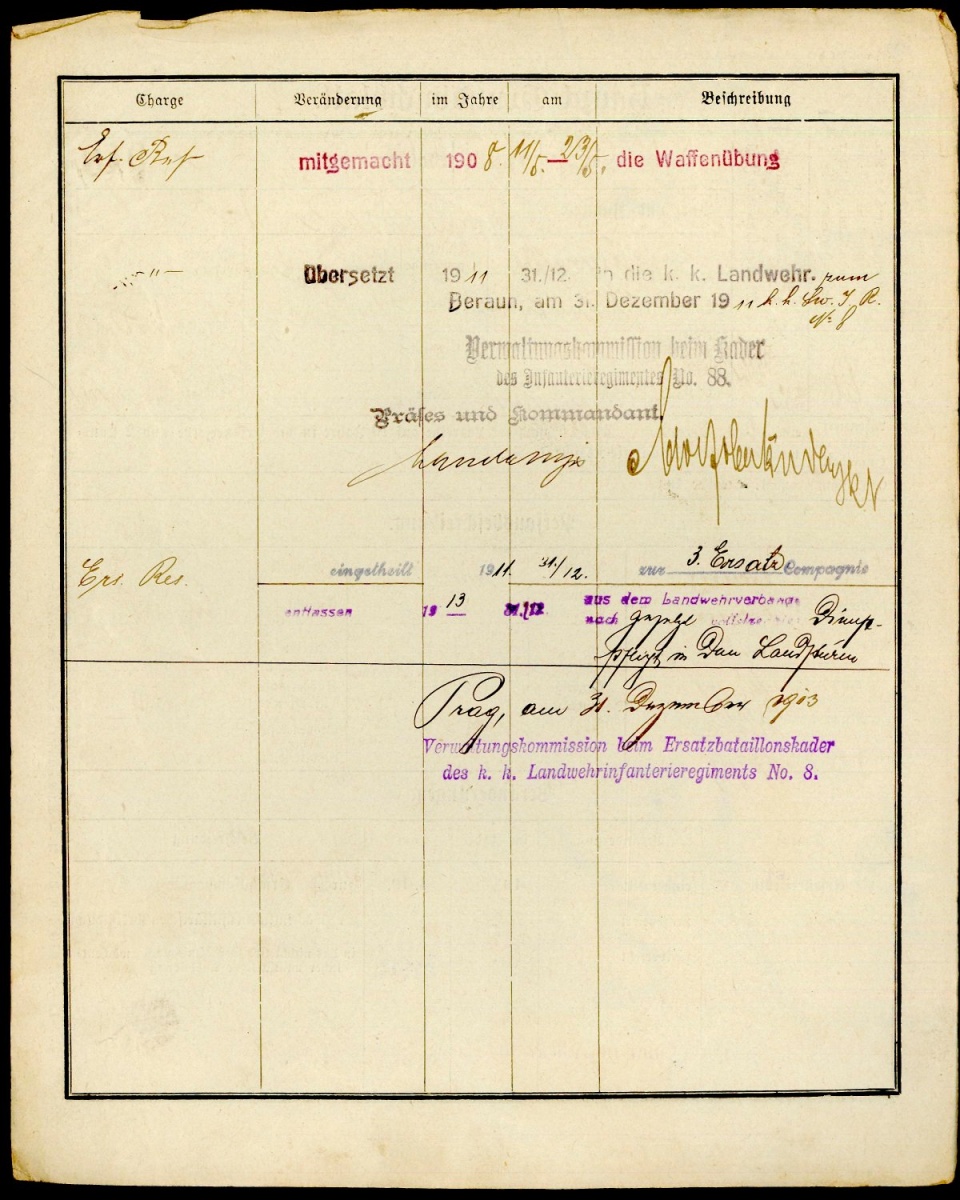 Charge Veränderung im Jahre am Beschreibung
Ers. Res mitgemacht 1908. 11/5. – 23/5. die Waffenübung
–"– übersetzt 1911 31./12. in die k. k. Landwehr. zum
Beraun, am 31. Dezember 1911 k. k. Lw. I. R.
Nr. 8
Verwaltungskommission beim Kader
des Infanterieregimentes No. 88.
Präses und Kommandant.
Ers. Res. eingetheilt 1911. 31./12. zur 3. Ersatz Compagnie
entlassen 1913 31./12 aus dem Landwehrverbande
nach Dienst-
pflicht in den Landsturm
Prag, am 31. Dezember 1913
Verwaltungskommission beim Ersatzbataillonskader
des k. k. Landwehrinfanterieregiments No. 8.